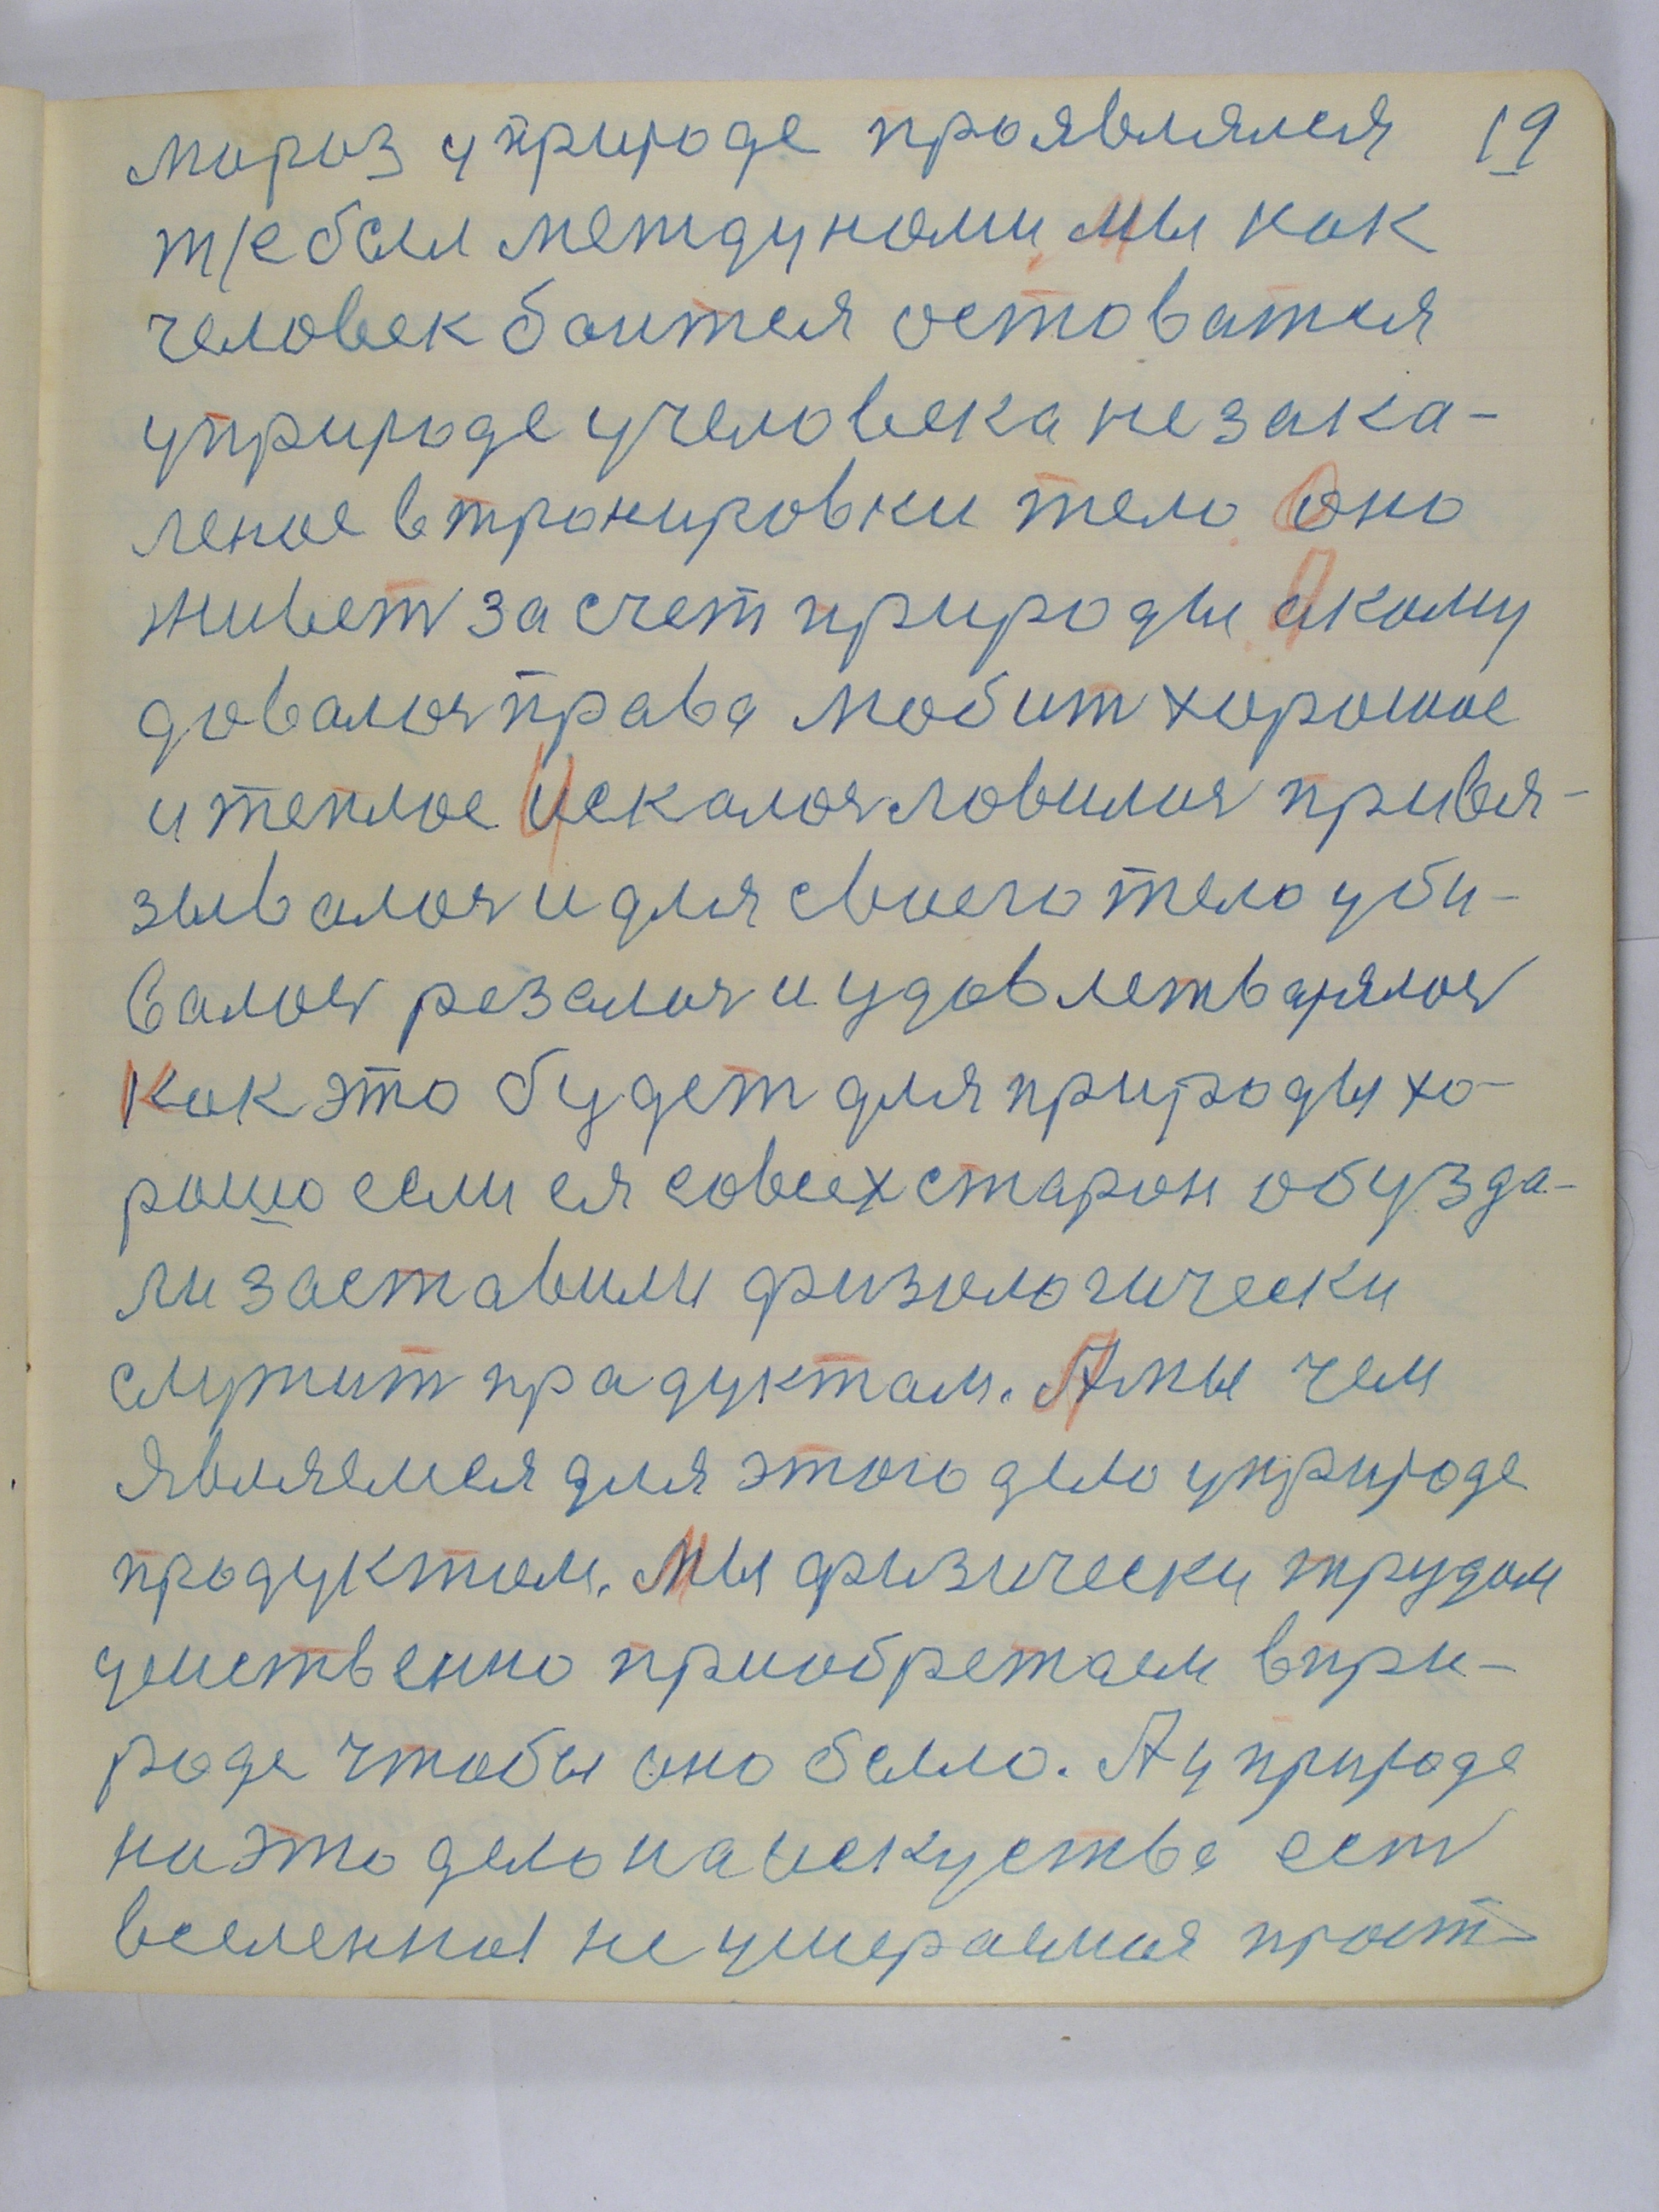 мороз у природе проявлялся 19
т/е был между нами. Мы как
человек боится остоватся
уприроде учеловека не зака-
леное втронировки тело. Оно
живет за счет природы. Акому
довалося права любит хорошое
и теплое Искалося ловилося привя-
зывалося и для своего тело уби-
валося резалося и удовлетварялося
Как это будет для природы хо-
рошо если ея совсех старон обузда-
ли заставили физиологически
служит прадуктам. А мы чем
являемся для этого дело уприроде
продуктом. Мы физически трудом
умственно приобретаем впри-
роде чтобы оно было. А у природе
на это дело на искуства ест
вселенная не умераемая прост-